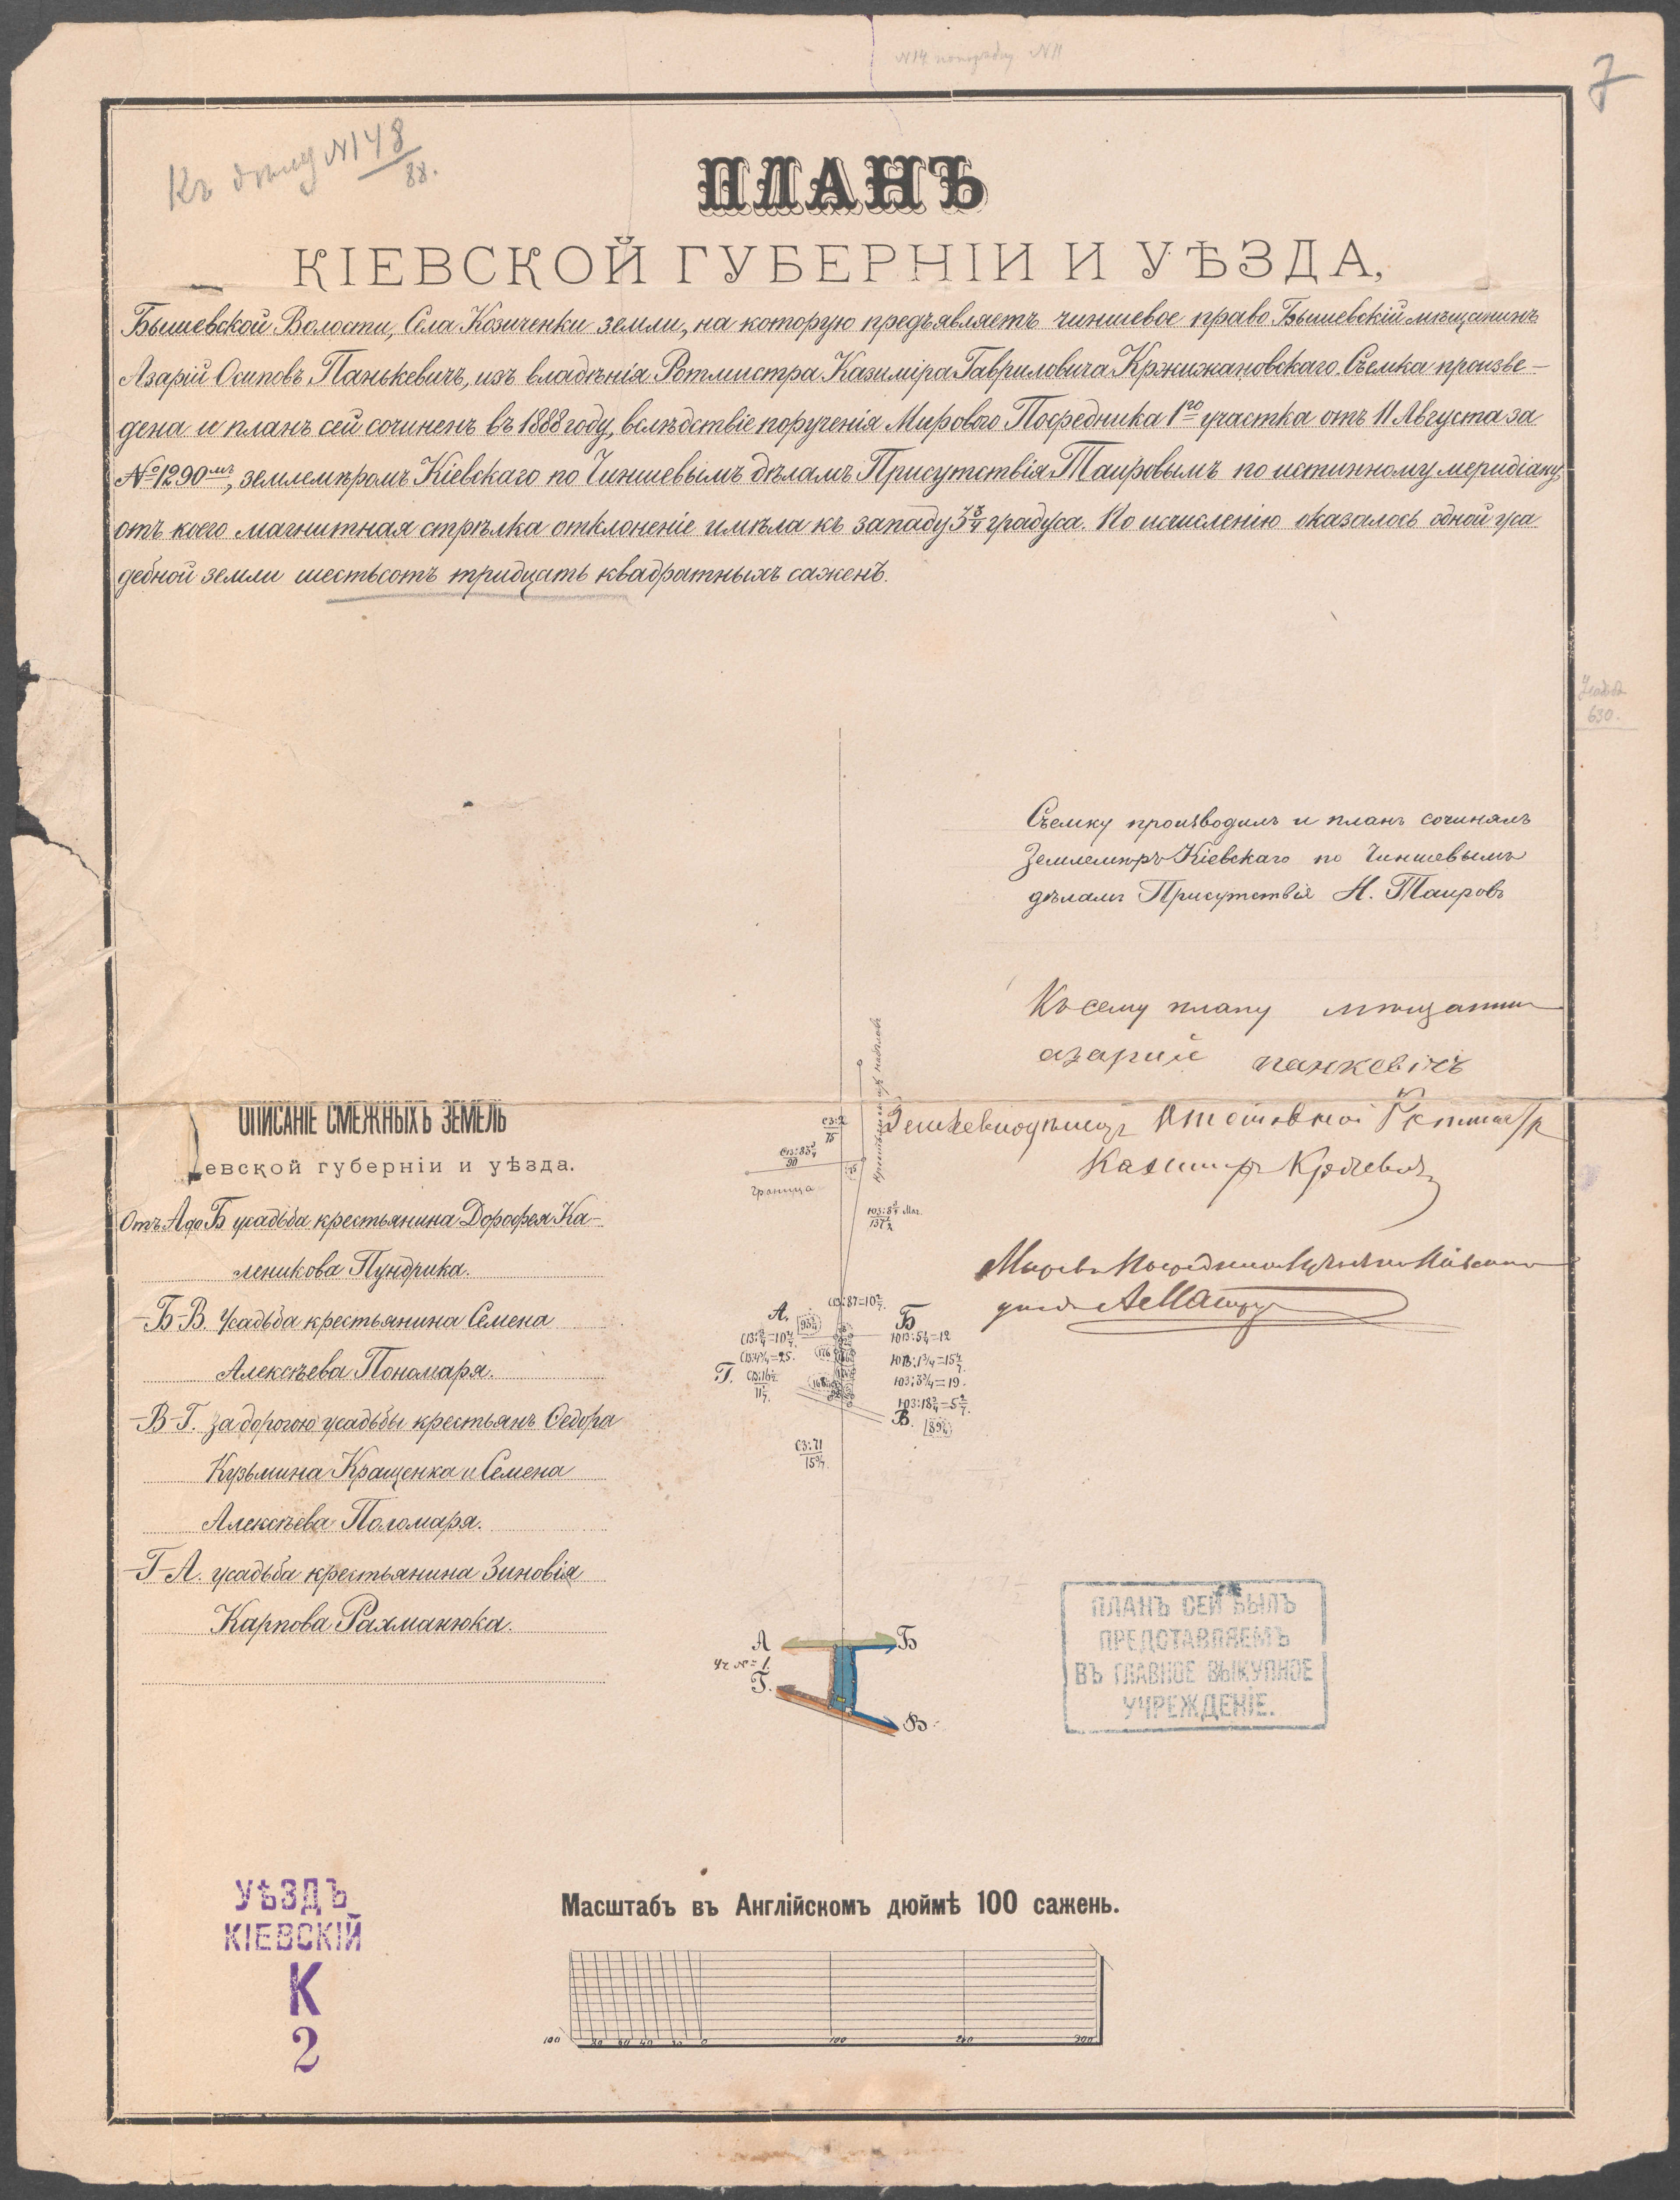 7
Къ дѣлу №148/88.
ПЛАНЪ
КІЕВСКОЙ ГУБЕРНІИ И УѢЗДА,
Бышевской Волости, Села Козиченки земли, на которую предъявляетъ чиншевое право Бышевскій мѣщанинъ
Азарій Осиповъ Панькевичъ, изъ владѣнія Ротмистра Казиміра Гавриловича Кржижановскаго. Съемка произве-
дена и планъ сей сочиненъ въ 1888 году, вслѣдствіе порученія Мирового Посредника 1го участка отъ 11 Августа за
№ 1290мъ, землемѣромъ Кіевскаго по Чиншевымъ дѣламъ Присутствія Таировымъ по истинному меридіану,
отъ коего магнитная стрѣлка отклоненіе имѣла къ западу 3 3/4 градуса. По исчисленію оказалось одной уса
дебной земли шестьсотъ тридцать квадратныхъ саженъ.
630.
Съемку производилъ и планъ сочинялъ
Землемѣръ Кіевскаго по Чиншевымъ
дѣламъ Присутствія Н. Таировъ
Къ сему плану мѣщанин
азарий панкевічъ
ОПИСАНІЕ СМЕЖНЫХЪ ЗЕМЕЛЬ
евской губерніи и уѣзда.
Отъ А до Б усадьба крестьянина Дорофея Ка-
леникова Пундрика.
-Б-В. Усадьба крестьянина Семена
Алексѣева Пономаря.
-В-Г. За дорогою усадьбы крестьянъ Ѳедора
Кузьмина Кращенка и Семена
Алексѣева Поломаря.
-Г-А. усадьба крестьянина Зиновія
Карпова Рахманюка.
СЗ:2/75
граница
А.
Б
СЗ:87=10 2/7.
ЮВ:5 1/4=12
Г.
В.
СЗ:71
А
Б
Уч №=1.
Г.
В.
ПЛАНЪ СЕЙ БЫЛЪ
ПРЕДСТАВЛЯЕМЪ
ВЪ ГЛАВНОЕ ВЫКУПНОЕ
УЧРЕЖДЕНІЕ.
УѢЗДЪ
КІЕВСКІЙ
К
2
Масштабъ въ Англійскомъ дюймѣ 100 сажень.
100 80 60 40 20 0 100 200 300